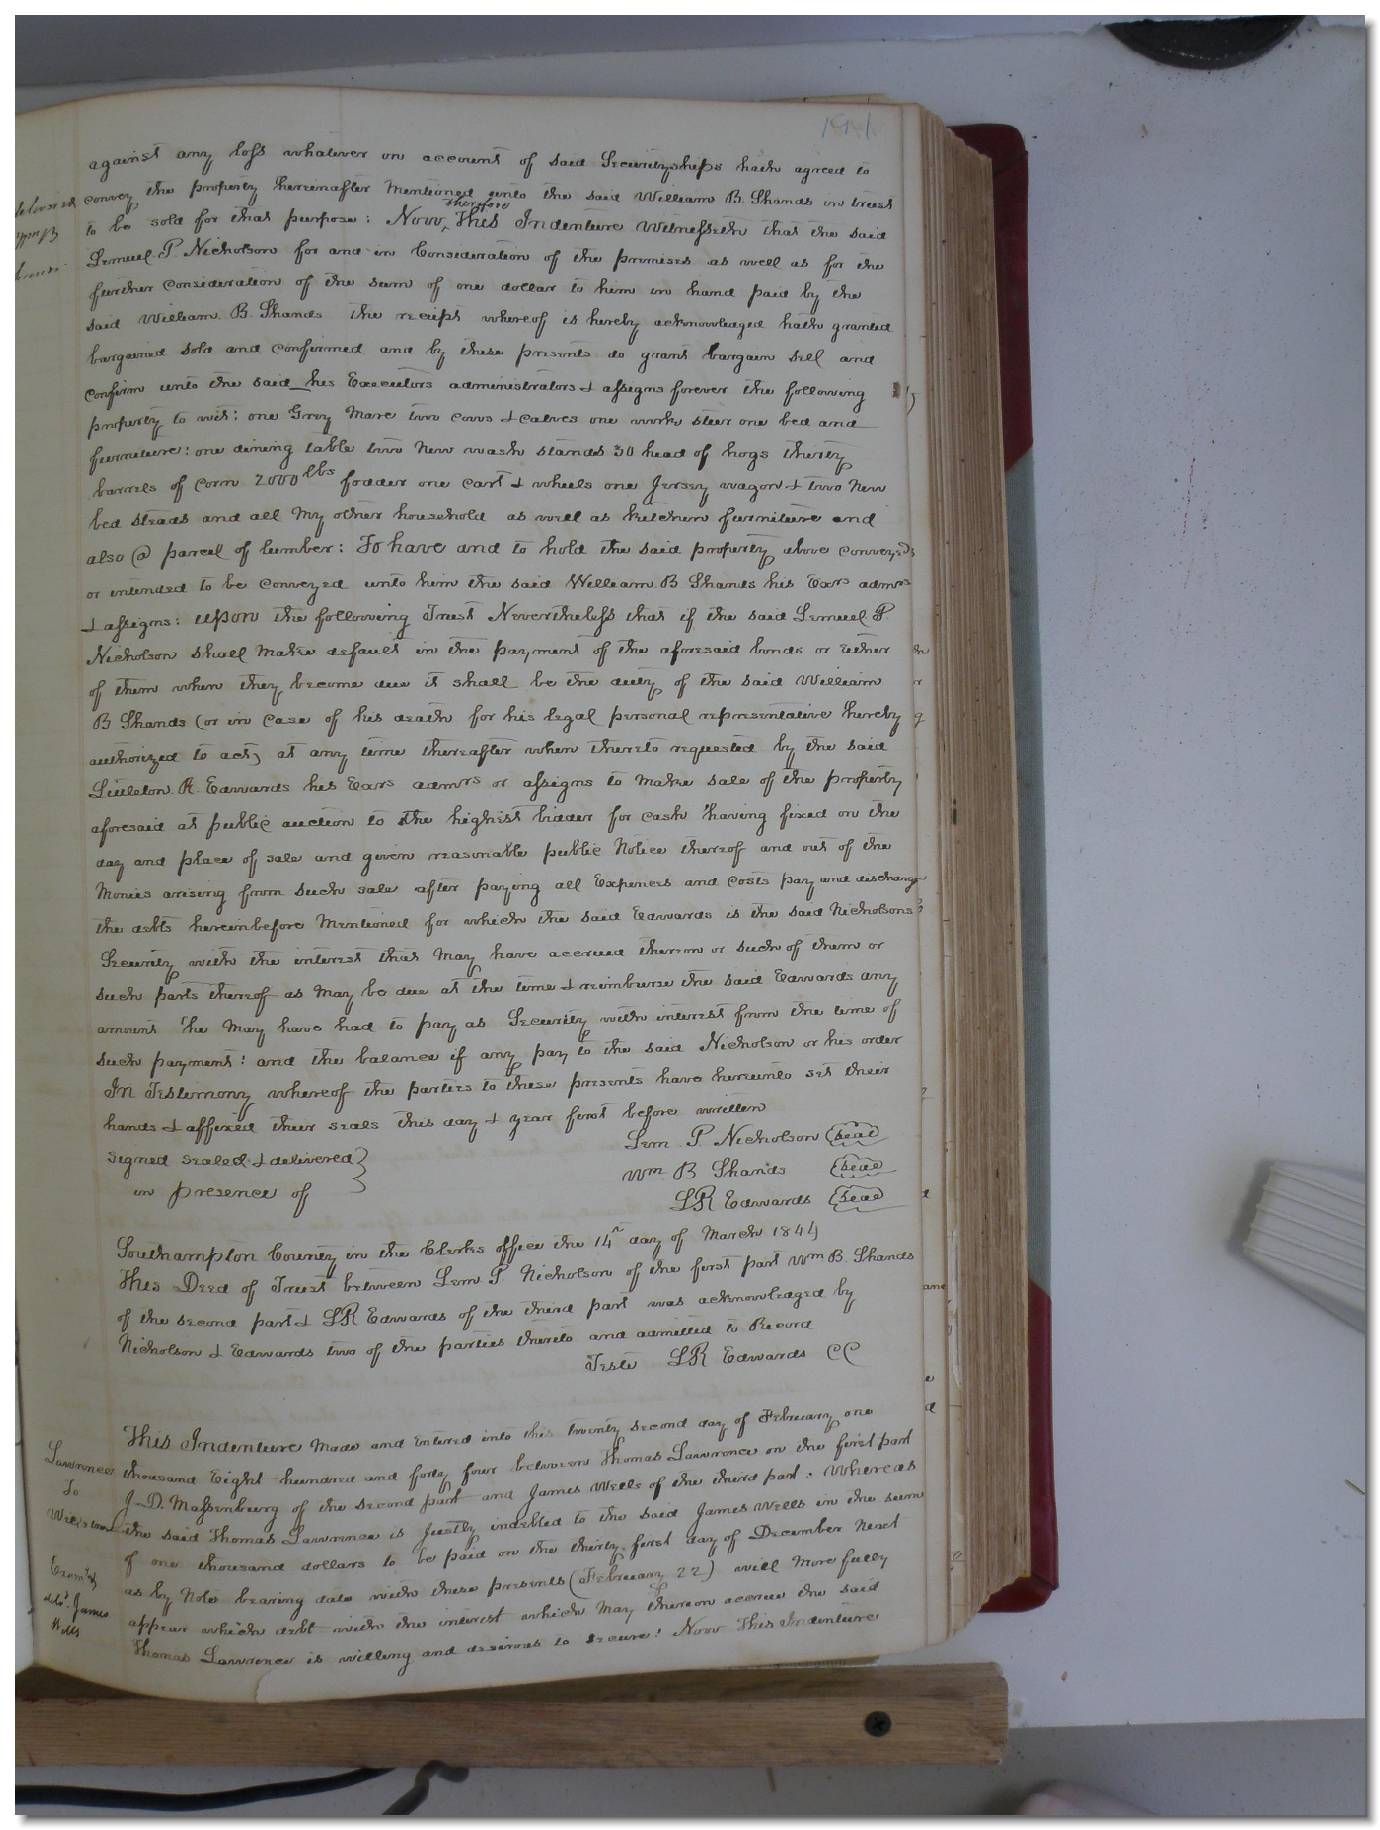 against any loss whatever on account of said Securityships hath agreed to
convey the property hereinafter Mentioned unto the said William B. Shands in trust
to be sold for that purpose: Now, therefore This Indenture Witnesseth that the said
Lemuel P. Nicholson for and in Consideration of the premises as well as for the
further Consideration of the sum of one dollar to him in hand paid by the
said William B. Shands the receipt whereof is hereby acknowledged hath granted
bargained sold and confirmed and by these presents do grant bargain sell and
confirm unto the said his Executors administrators & assigns forever the following
property to wit: one Grey Mare two cows & calves one work steer one bed and
furniture: one dining table two New wash stands 30 head of hogs thirty
barrels of Corn 2000 lbs fodder one cart & wheels one Jersey wagon & two New
bed steads and all My other household as well as kitchen furniture and
also @ parcel of lumber: To have and to hold the said property above conveyed
or intended to be Conveyed unto him the said William B Shands his Exors admrs
& assigns: upon the following Trust Nevertheless that if the said Lemuel P.
Nicholson shall Make default in the payment of the aforesaid bonds or Either
of them when they become due it shall be the duty of the said William
B Shands (or in Case of his death for his legal personal representative hereby
authorized to act) at any time thereafter when thereto requested by the said
Littleton R. Edwards his Exors admrs or assigns to Make sale of the property
aforesaid at public auction to the highest bidder for cash having fixed on the
day and place of sale and given reasonable public Notice thereof and out of the
Monies arising from such sale after paying all Expences and costs pay and discharge
the debts hereinbefore Mentioned for which the said Edwards is the said Nicholsons
Security with the interest that May have accrued thereon or such of them or
such parts thereof as May be due at the time & reimburse the said Edwards any
amount he May have had to pay as Security with interest from the time of
such payment: and the balance if any pay to the said Nicholson or his order
In Testimony whereof the parties to these presents have hereunto set their
hands & affixed their seals this day & year first before written
signed sealed & delivered } Lem P Nicholson (seal)
in presence of Wm B Shands (seal)
LR Edwards (seal)
Southampton County in the Clerks office the 14th day of March 1844
This Deed of Trust between Lem P Nicholson of the first part Wm B. Shands
of the second part & LR Edwards of the third part was acknowledged by
Nicholson & Edwards two of the parties thereto and admitted to Record
Teste LR Edwards CC
This Indenture Made and Entered into this twenty second day of February one
Lawrence thousand Eight hundred and forty four between Thomas Lawrence on the first part
To J-D. Massenburg of the second part and James Wells of the third part. Whereas
the said Thomas Lawrence is justly indebted to the said James Wells in the sum
of one thousand dollars to be paid on the thirty first day of December Next
as by Note bearing date with these presents (February 22) will More fully
James appear which debt with the interest which May thereon accrue the said
Wells Thomas Lawrence is willing and desirous to secure: Now This Indenture